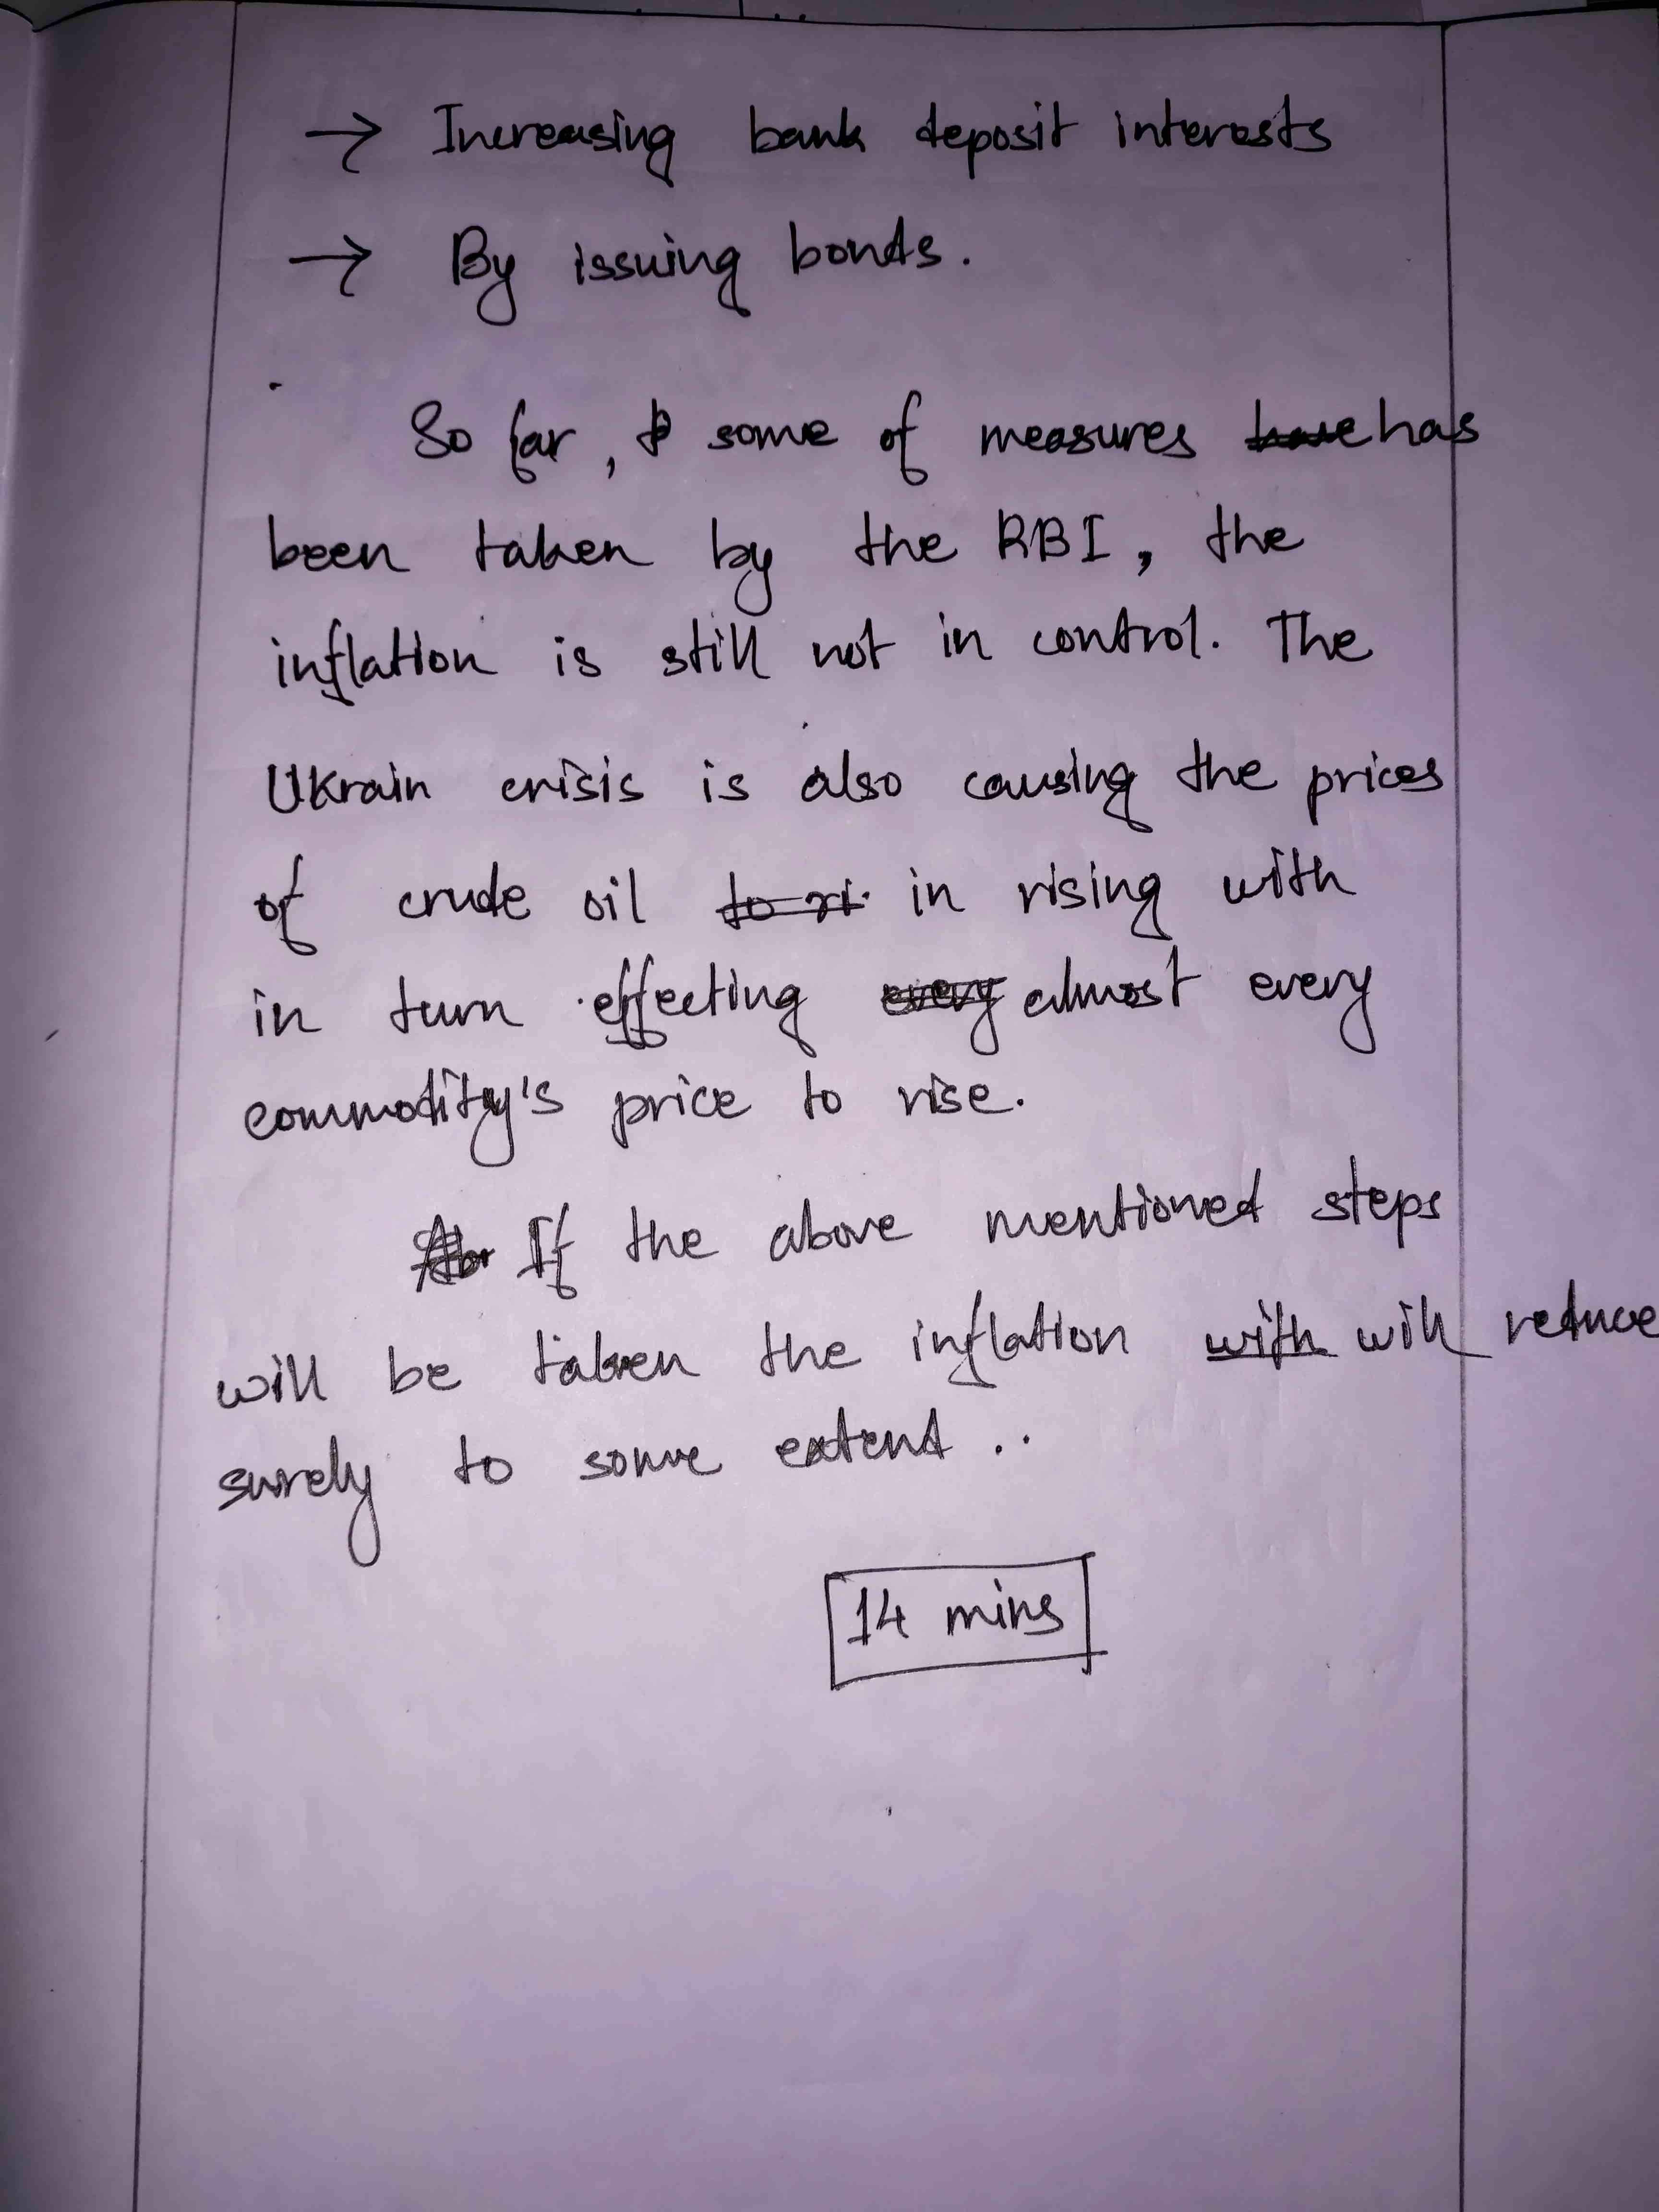 → Increasing bank deposit interests
→ By issuing bonds.
So far, some of measures have has
been taken by the RBI, the
inflation is still not in control. The
Ukrain crisis is also causing the prices
of crude oil to ri in rising with
in turn effecting every almost every
commodity's price to rise.
If the above mentioned steps
will be taken the inflation with will reduce
surely to some extend ..
14 mins